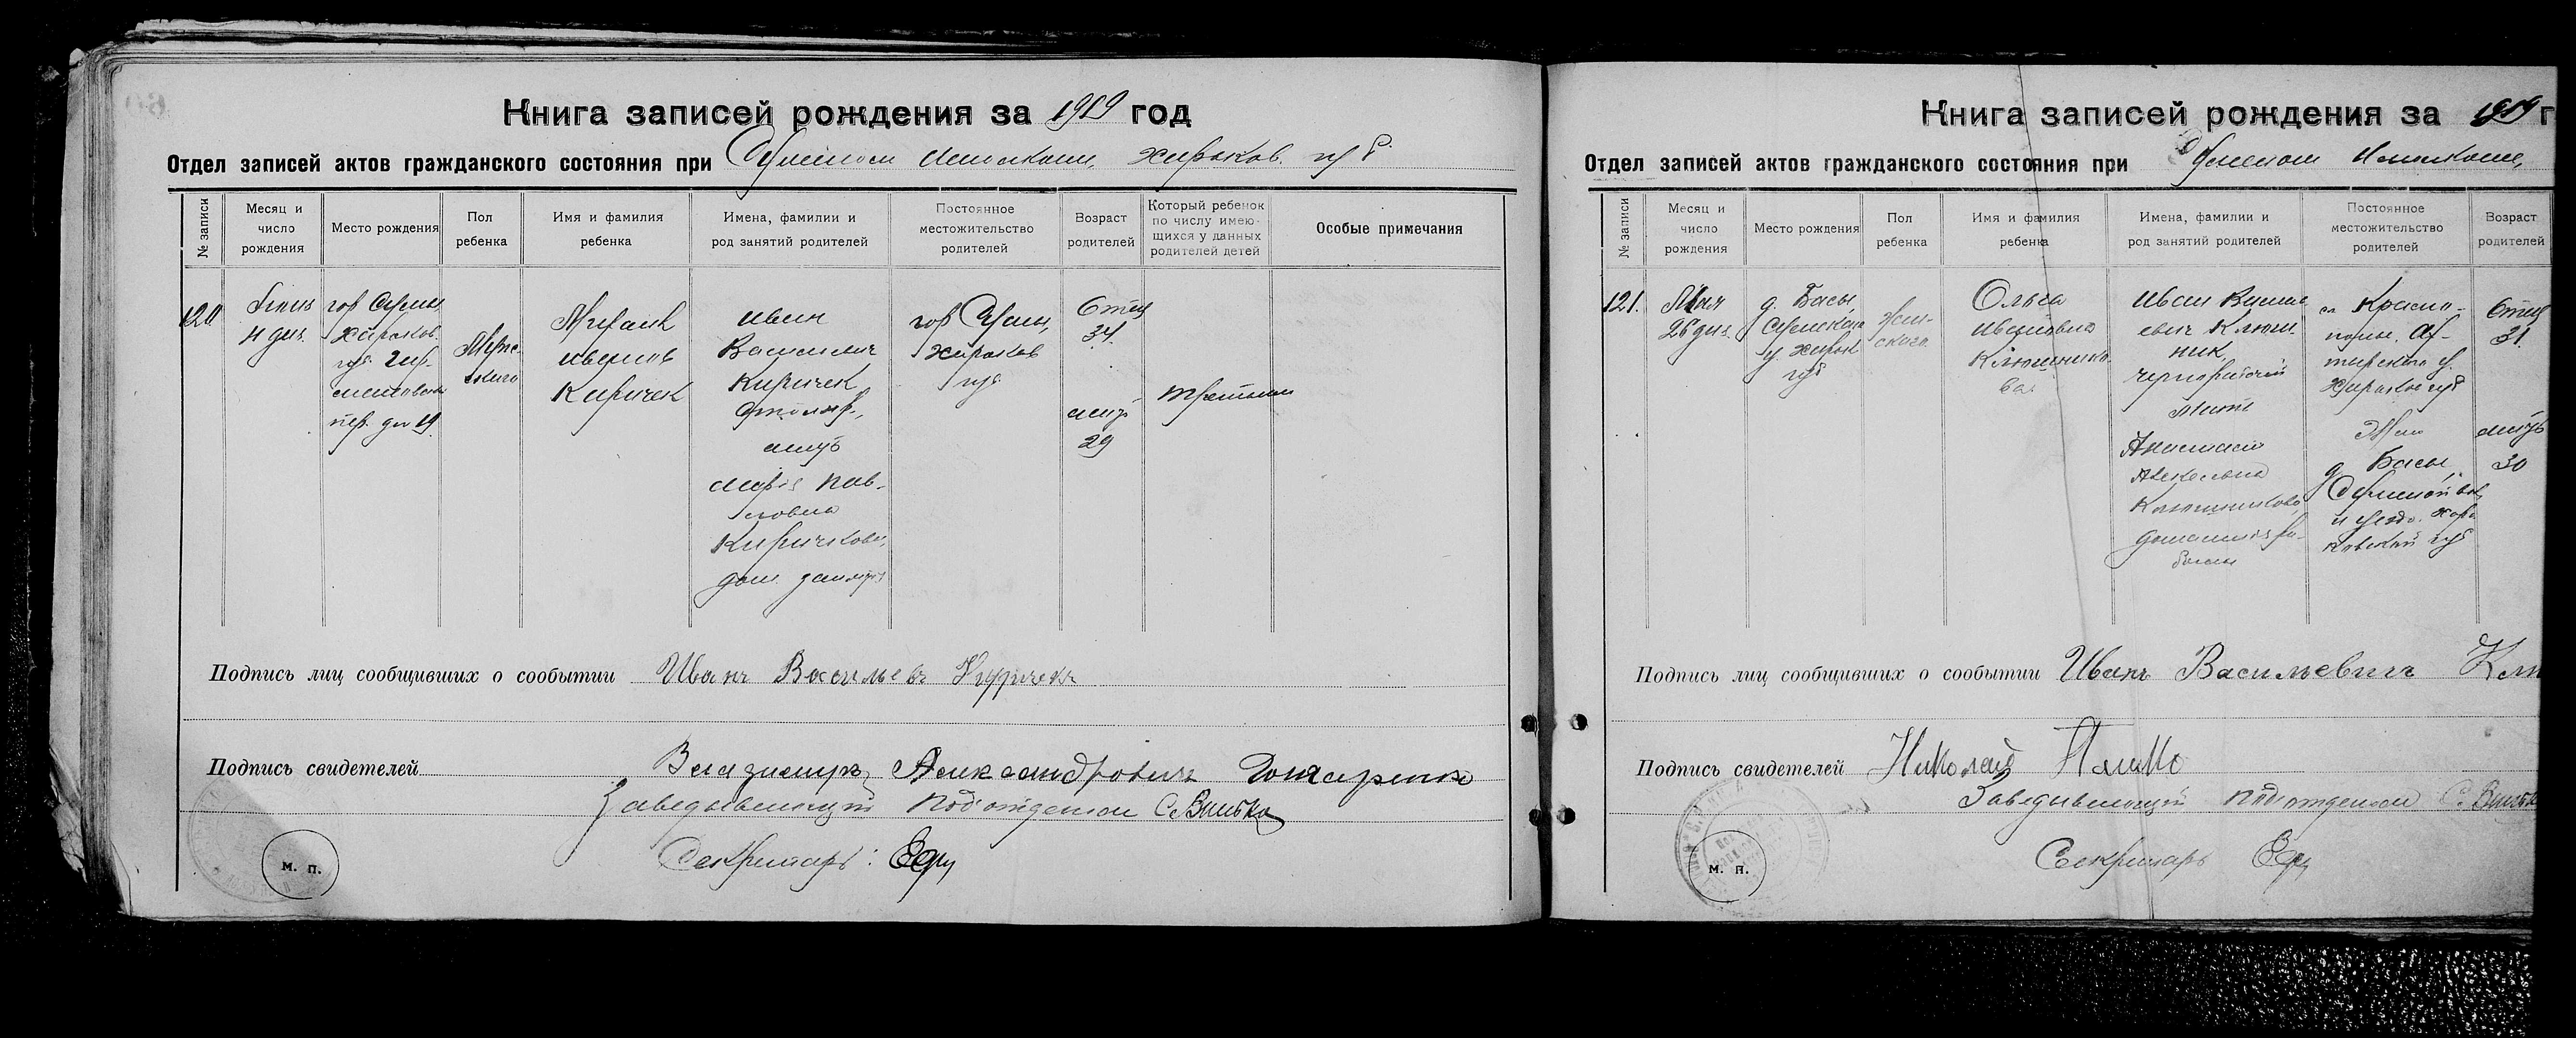 Книга записей рождения за 1919 год
Отдел записей актов гражданского состояния при Сумском Исполкоме, Харьков. губ.
№ записи
Месяц и число рождения
Место рождения
Пол ребенка
Имя и фамилия ребенка
Имена, фамилии и род занятий родителей
Постоянное местожительство родителей
Возраст родителей
Который ребенок по числу имеющихся у данных родителей детей
Особые примечания
120
Июня
4 дня.
гор Сумы,
Харьков.
губ.
пер. дом 19
Мужс-
кого
Иванов
Киричек
Иван
Васильевич
Киричек
столяр,
мать
Мария Пав-
ловна
Киричкова,
дом. занятия
гор Сумы,
Харьков
губ
Отец
34.
мать
29
третьим
Подпись лиц сообщивших о сообытии Иванъ Васильевъ Киричекъ
Подпись свидетелей Владимиръ Александровичъ
Заведывающий Подотделом С. Вилько
Секретарь:
м. п.
Книга записей рождения за 1919 г
Отдел записей актов гражданского состояния при Сумском Исполкоме,
№ записи
Месяц и число рождения
Место рождения
Пол ребенка
Имя и фамилия ребенка
Имена, фамилии и род занятий родителей
Постоянное местожительство родителей
Возраст родителей
121.
Мая
26 дня.
д. Басы,
Сумского
у. Харьк
губ
Жен-
ского.
Ольга
Ивановна
Ключнико-
ва.
Иван Василь
евич Ключ
ник,
чернорабочий
Мать
Анастасия
Алексеевна
Ключникова,
домашняя ра-
бота
сл Красно-
полье, Ах-
тырского у.
Харьков губ
д. Басы,
Сумской вол,
и уезда. Харь
ковской губ
Отец
31.
мать
30
Подпись лиц сообщивших о сообытии Иванъ Васильевичъ Клю
Подпись свидетелей Николай
Заведывающий Подотделом С. Вилько
Секретарь
м. п.